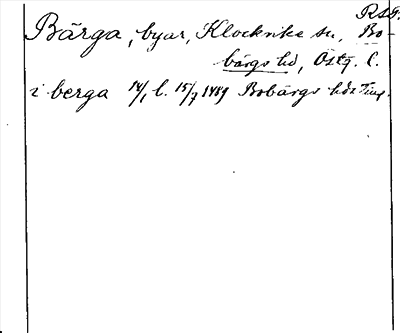 RSG.
Bärga, byar, Klockrike sn, Bo-
bärgs hd, Östg. l.
i berga 14/1 l. 15/7 1489 Bobärgs hds Ting.